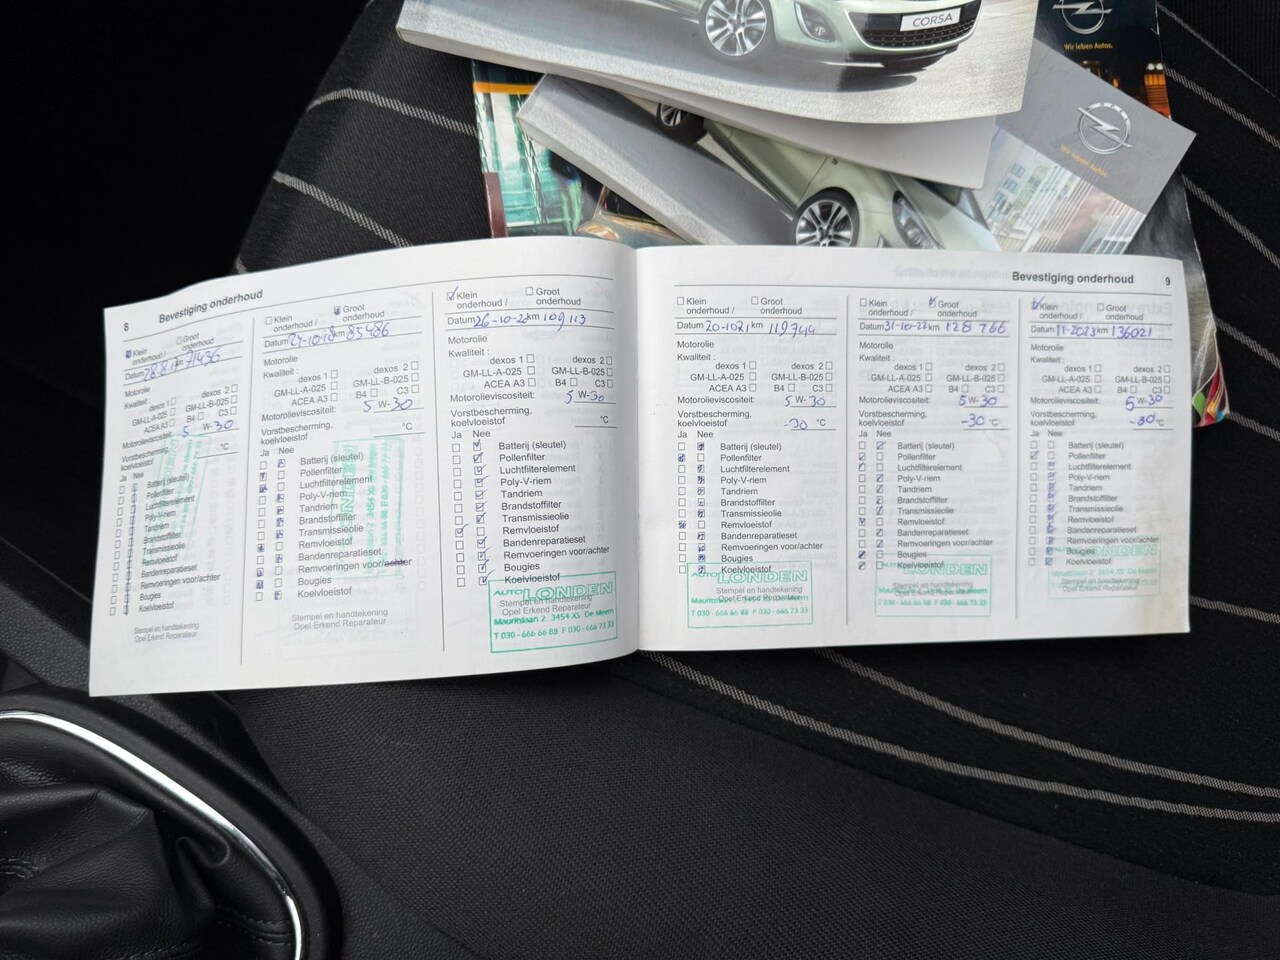 CORSA
Wir leben Autos.
Wir leben Autos.
8 Bevestiging onderhoud
Klein onderhoud / Groot onderhoud
Datum km 71436
Motorolie
Kwaliteit :
dexos 1 dexos 2
GM-LL-A-025 GM-LL-B-025
ACEA A3 B4 C3
Motorolieviscositeit: 5 W-30
Vorstbescherming, koelvloeistof °C
Ja Nee
Batterij (sleutel)
Pollenfilter
Luchtfilterelement
Poly-V-riem
Tandriem
Brandstoffilter
Transmissieolie
Remvloeistof
Bandenreparatieset
Remvoeringen voor/achter
Bougies
Koelvloeistof
Stempel en handtekening
Opel Erkend Reparateur
Klein onderhoud / Groot onderhoud
Datum km 85486
Motorolie
Kwaliteit :
dexos 1 dexos 2
GM-LL-A-025 GM-LL-B-025
ACEA A3 B4 C3
Motorolieviscositeit: 5 W-30
Vorstbescherming, koelvloeistof °C
Ja Nee
Batterij (sleutel)
Pollenfilter
Luchtfilterelement
Poly-V-riem
Tandriem
Brandstoffilter
Transmissieolie
Remvloeistof
Bandenreparatieset
Remvoeringen voor/achter
Bougies
Koelvloeistof
Stempel en handtekening
Opel Erkend Reparateur
Klein onderhoud / Groot onderhoud
Datum 26-10-20 km 109113
Motorolie
Kwaliteit :
dexos 1 dexos 2
GM-LL-A-025 GM-LL-B-025
ACEA A3 B4 C3
Motorolieviscositeit: 5 W-30
Vorstbescherming, koelvloeistof °C
Ja Nee
Batterij (sleutel)
Pollenfilter
Luchtfilterelement
Poly-V-riem
Tandriem
Brandstoffilter
Transmissieolie
Remvloeistof
Bandenreparatieset
Remvoeringen voor/achter
Bougies
Koelvloeistof
AUTO LONDEN
Stempel en handtekening
Opel Erkend Reparateur
Mauritslaan 2 3454 XS De Meern
T 030 - 666 66 88 F 030 - 666 73 33
Bevestiging onderhoud 9
Klein onderhoud / Groot onderhoud
Datum 20-1021 km 119744
Motorolie
Kwaliteit :
dexos 1 dexos 2
GM-LL-A-025 GM-LL-B-025
ACEA A3 B4 C3
Motorolieviscositeit: 5 W-30
Vorstbescherming, koelvloeistof -30 °C
Ja Nee
Batterij (sleutel)
Pollenfilter
Luchtfilterelement
Poly-V-riem
Tandriem
Brandstoffilter
Transmissieolie
Remvloeistof
Bandenreparatieset
Remvoeringen voor/achter
Bougies
Koelvloeistof
AUTO LONDEN
Stempel en handtekening
Opel Erkend Reparateur
Mauritslaan 2 3454 XS De Meern
T 030 - 666 66 88 F 030 - 666 73 33
Klein onderhoud / Groot onderhoud
Datum 31-10-22 km 128766
Motorolie
Kwaliteit :
dexos 1 dexos 2
GM-LL-A-025 GM-LL-B-025
ACEA A3 B4 C3
Motorolieviscositeit: 5 W-30
Vorstbescherming, koelvloeistof -30 °C
Ja Nee
Batterij (sleutel)
Pollenfilter
Luchtfilterelement
Poly-V-riem
Tandriem
Brandstoffilter
Transmissieolie
Remvloeistof
Bandenreparatieset
Remvoeringen voor/achter
Bougies
Koelvloeistof
LONDEN
Stempel en handtekening
Opel Erkend Reparateur
T 030 - 666 66 88 F 030 - 666 73 33
Klein onderhoud / Groot onderhoud
Datum 11-2023 km 136021
Motorolie
Kwaliteit :
dexos 1 dexos 2
GM-LL-A-025 GM-LL-B-025
ACEA A3 B4 C3
Motorolieviscositeit: 5 W-30
Vorstbescherming, koelvloeistof -30 °C
Ja Nee
Batterij (sleutel)
Pollenfilter
Luchtfilterelement
Poly-V-riem
Tandriem
Brandstoffilter
Transmissieolie
Remvloeistof
Bandenreparatieset
Remvoeringen voor/achter
Bougies
Koelvloeistof
LONDEN
Stempel en handtekening
Opel Erkend Reparateur